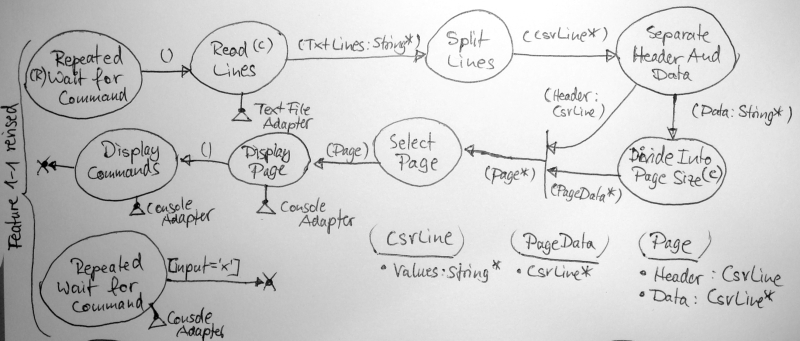 Feature 1-1 revised
Repeated
(R) Wait for
Command
()
Read (C)
Lines
Text File
Adapter
(TxtLines:String*)
Split
Lines
(CsrLine*)
Separate
Header And
Data
(Header:
CsrLine)
(Data:String*)
Divide Into
Page Size (C)
(PageData*)
(Page*)
Select
Page
(Page)
Display
Page
Console
Adapter
()
Display
Commands
Console
Adapter
Repeated
Wait for
Command
Console
Adapter
[Input='x']
(CsrLine)
• Values:String*
(PageData)
• CsrLine*
(Page)
• Header: CsrLine
• Data: CsrLine*